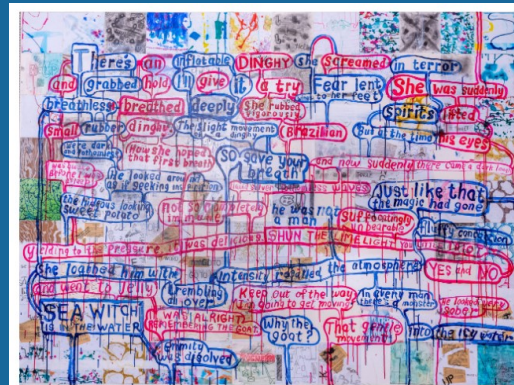 There's an inflatable DINGHY she screamed in terror
and grabbed hold I'll give it a try Fear lent to her feet She was suddenly
breathless breathed deeply She rubbed vigorously spirits lifted
Small rubber dinghy. The slight movement a dinghy Brazilian But at the time his eyes
How she hoped that first breath SO save your breath and now suddenly there came a
He looked around as if seeking Just like that the magic had gone
the hideous looking sweet potato not so completely immune he was not a man Suffocatingly unbearable
Yielding to the pressure it was delicious. SHUN THE LIMELIGHT
She loathed him with intensity the atmosphere YES and NO
and went to jelly trembling all over Keep out of the way going to get moving In every man there's a monster He looked very sober
SEA WITCH IN THE WATER I WAS ALRIGHT REMEMBERING THE GOAT. Why the goat? That gentle movement into the icy water
enmity was dissolved